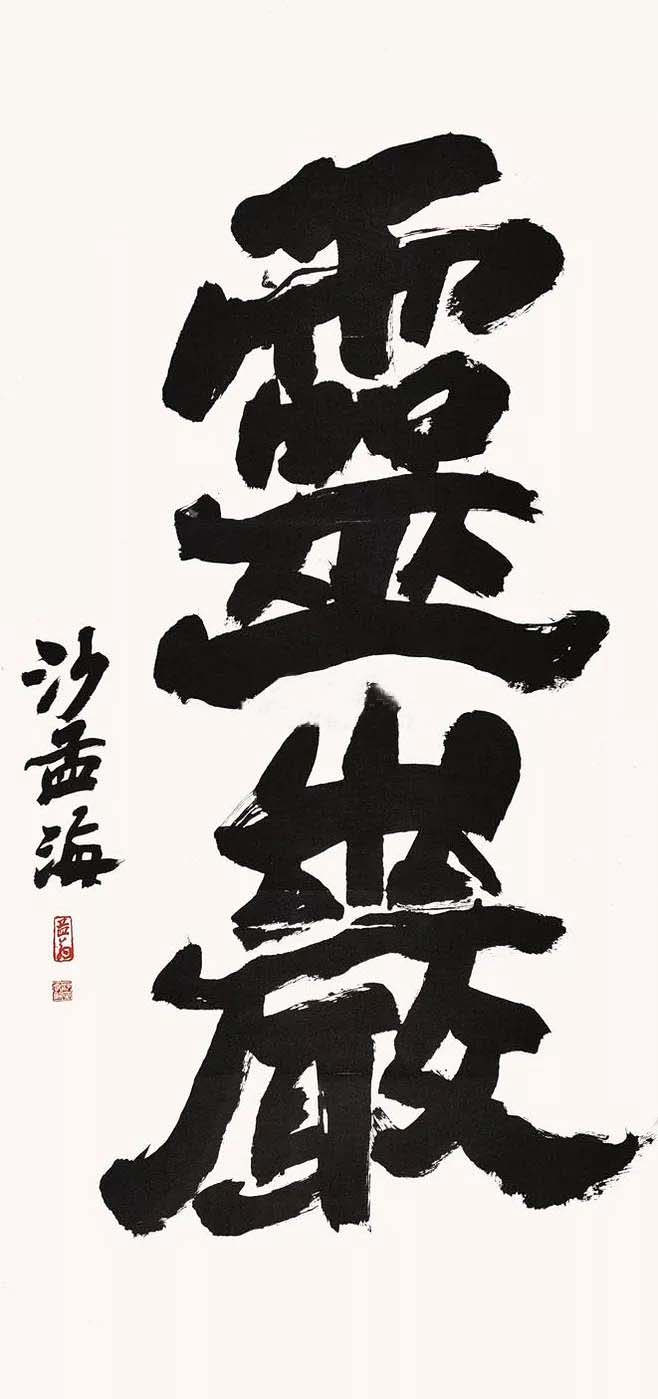 靈巖
沙孟海